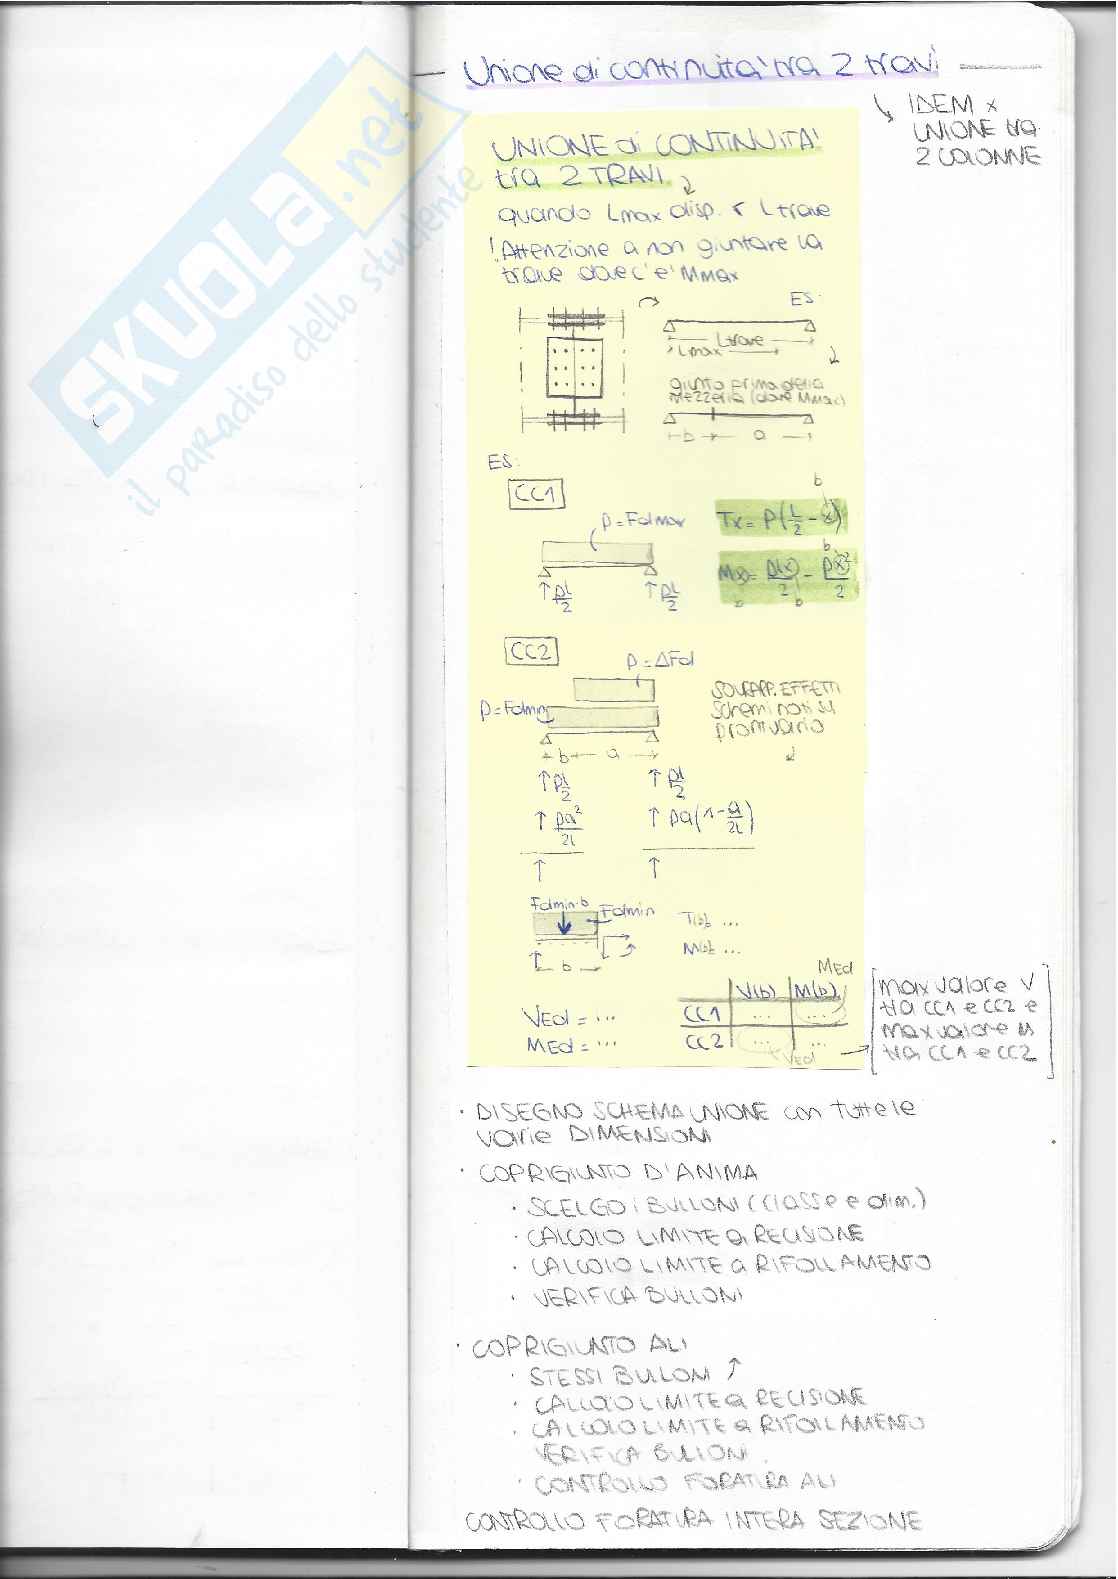 Unione di continuità tra 2 travi
↳ IDEM x
UNIONE tra
2 COLONNE
UNIONE di CONTINUITA'
tra 2 TRAVI.
quando Lmax disp. < L trave
! Attenzione a non giuntare la
trave dove c'è Mmax
ES:
Ltrave
Lmax
giunto prima della
mezzeria (dove Mmax)
b a
ES:
CC1
p=Fdmax
b
Tx = P(L/2 - x)
b
M(x) = pl(x)/2 - px²/2
b b
↑ pl/2 ↑ pl/2
CC2
p=ΔFd
p=Fdmin
SOVRAPP. EFFETTI
schemi noti su
prontuario
b a
↑ pl/2 ↑ pl/2
↑ pa²/2l ↑ pa(1-a/2l)
↑ ↑
Fdmin·b
Fdmin
T(b) ...
M(b) ...
b
MEd
V(b) M(b)
CC1 ... ...
CC2 ... ...
VEd
VEd = ...
MEd = ...
max valore V
tra CC1 e CC2 e
max valore M
tra CC1 e CC2
· DISEGNO SCHEMA UNIONE con tutte le
varie DIMENSIONI
· COPRIGIUNTO D'ANIMA
· SCELGO i BULLONI (classe e dim.)
· CALCOLO LIMITE a RECISIONE
· CALCOLO LIMITE a RIFOLLAMENTO
· VERIFICA BULLONI
· COPRIGIUNTO ALI
· STESSI BULLONI ↑
· CALCOLO LIMITE a RECISIONE
· CALCOLO LIMITE a RIFOLLAMENTO
VERIFICA BULLONI.
· CONTROLLO FORATURA ALI
CONTROLLO FORATURA INTERA SEZIONE
SKUOLA.net
il paradiso dello studente